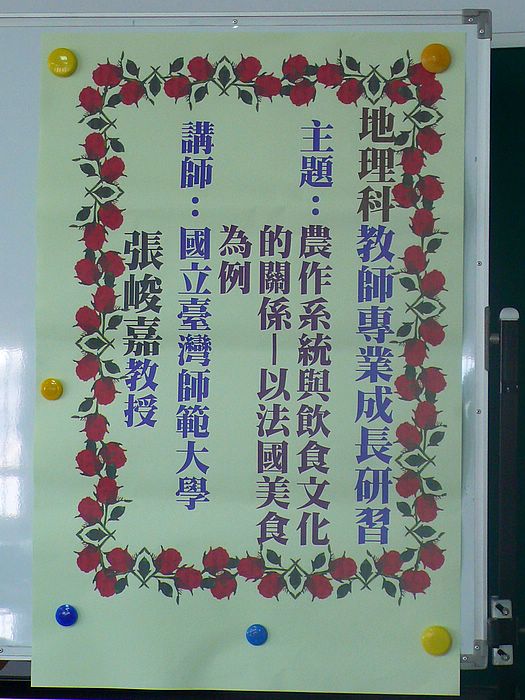 地理科教師專業成長研習
主題：農作系統與飲食文化
的關係－以法國美食
為例
講師：國立臺灣師範大學
張峻嘉教授